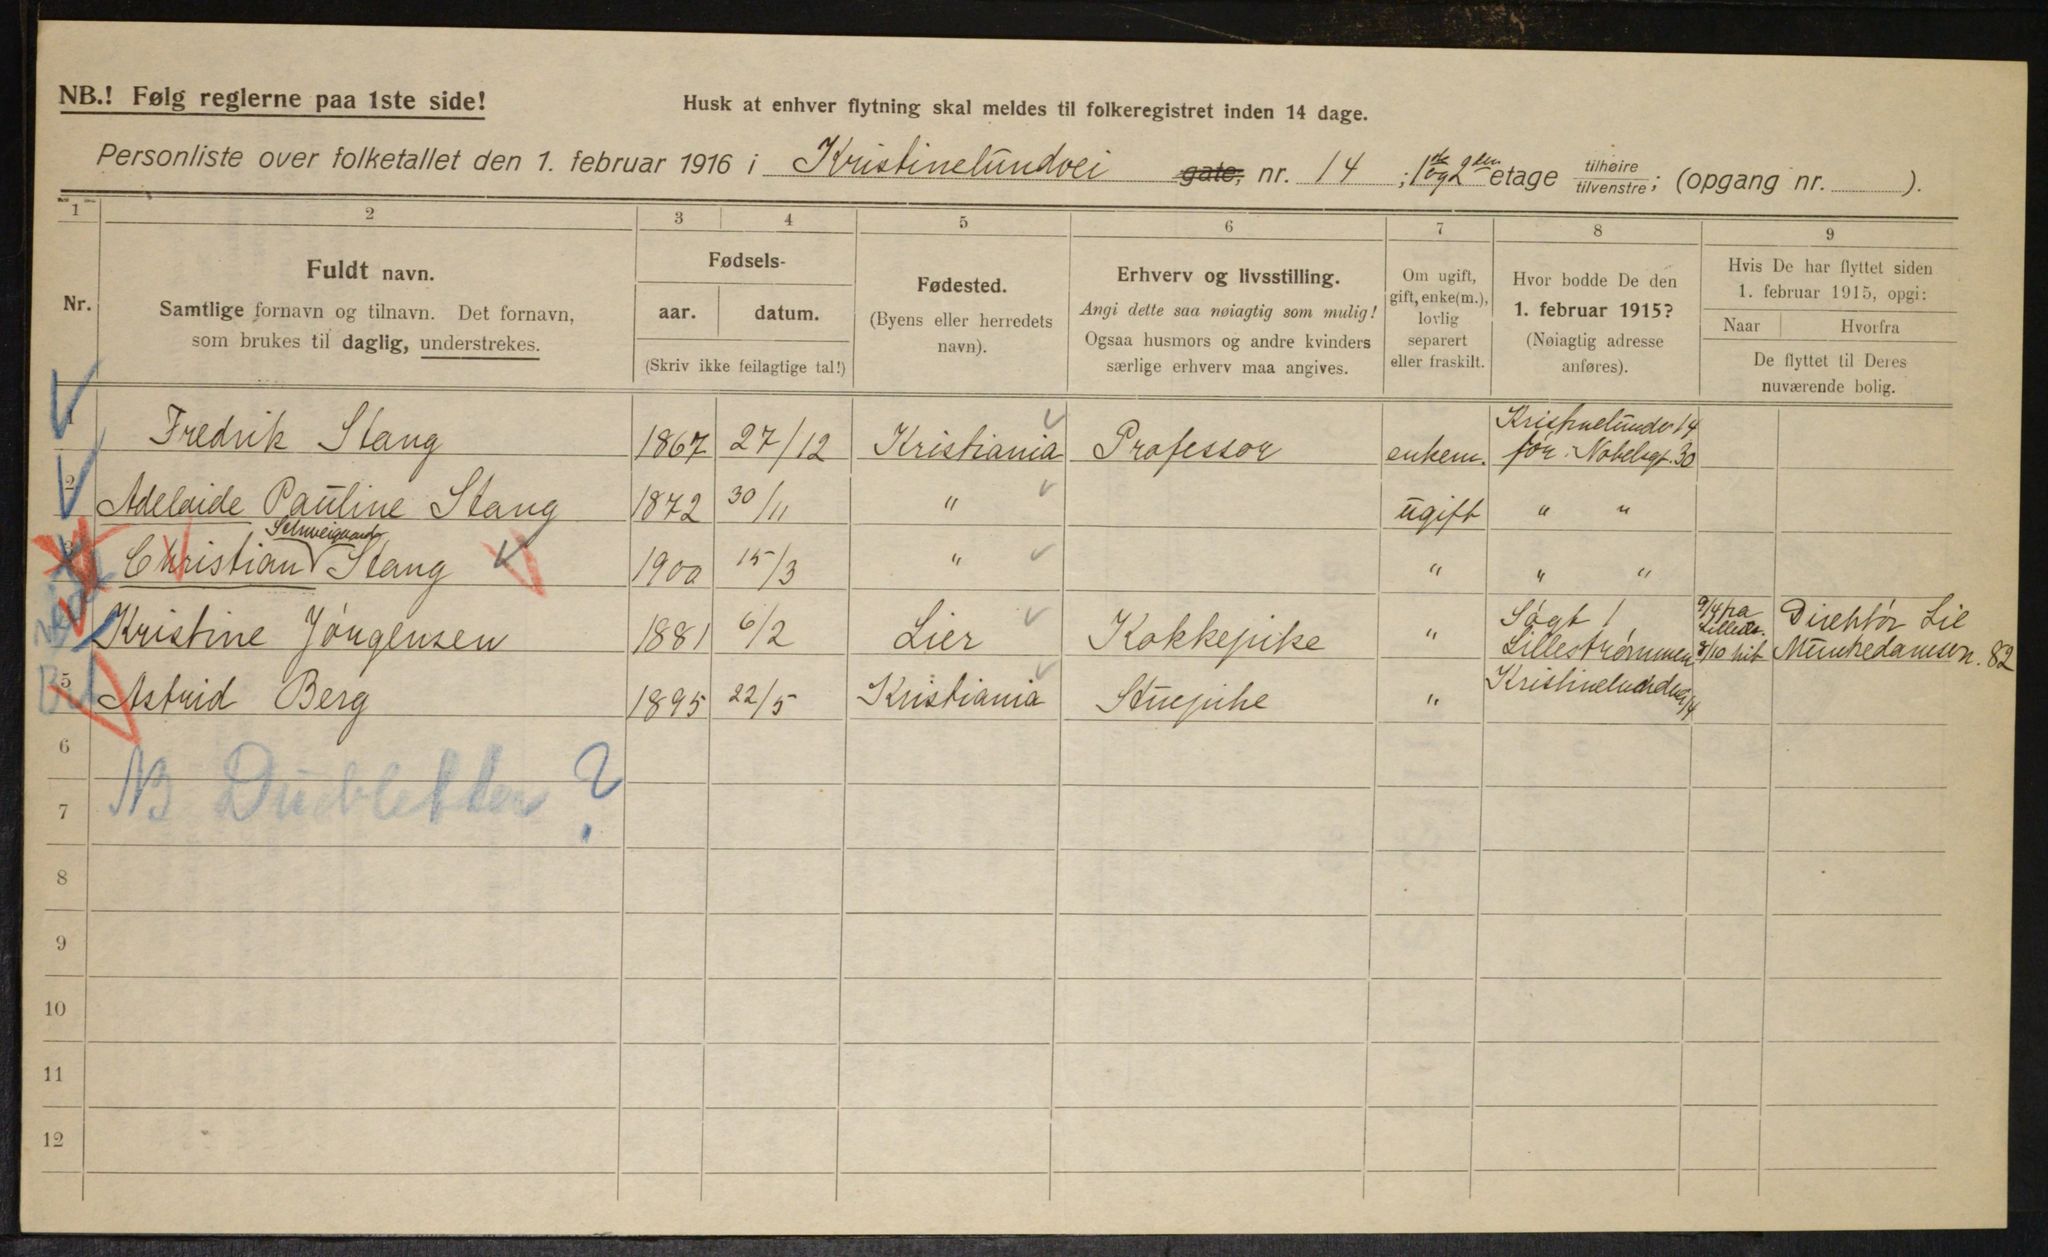 NB.! Følg reglerne paa 1ste side!
Husk at enhver flytning skal meldes til folkeregistret inden 14 dage.
Personliste over folketallet den 1. februar 1916 i Kristinelundvei gate, nr. 14 ; 1ste og 2den etage tilhøire tilvenstre; (opgang nr. ).
1 2 3 4 5 6 7 8 9
Nr.
Fuldt navn.
Samtlige fornavn og tilnavn. Det fornavn,
som brukes til daglig, understrekes.
Fødsels-
aar. datum.
(Skriv ikke feilagtige tal!)
Fødested.
(Byens eller herredets
navn).
Erhverv og livsstilling.
Angi dette saa nøiagtig som mulig!
Ogsaa husmors og andre kvinders
særlige erhverv maa angives.
Om ugift,
gift, enke(m.),
lovlig
separert
eller fraskilt.
Hvor bodde De den
1. februar 1915?
(Nøiagtig adresse
anføres).
Hvis De har flyttet siden
1. februar 1915, opgi:
Naar Hvorfra
De flyttet til Deres
nuværende bolig.
1 Fredrik Stang 1867 27/12 Kristiania Professor enkem. Kristinelundv 14
før: Nobelsgt. 30
2 Adelaide Pauline Stang 1872 30/11 " ugift " "
Schweigaard
3 Christian Stang 1900 15/3 " " " "
Kristine Jörgensen 1881 6/2 Lier Kokkepike " Sogt /
Lillestrømmen 9/4 fra
Lillestr.
8/10 hit Direktör Lie
Munkedamsv. 82
5 Astrid Berg 1895 22/5 Kristiania Stuepike " Kristinelundvei 14
6
NB Dubletter?
7
8
9
10
11
12